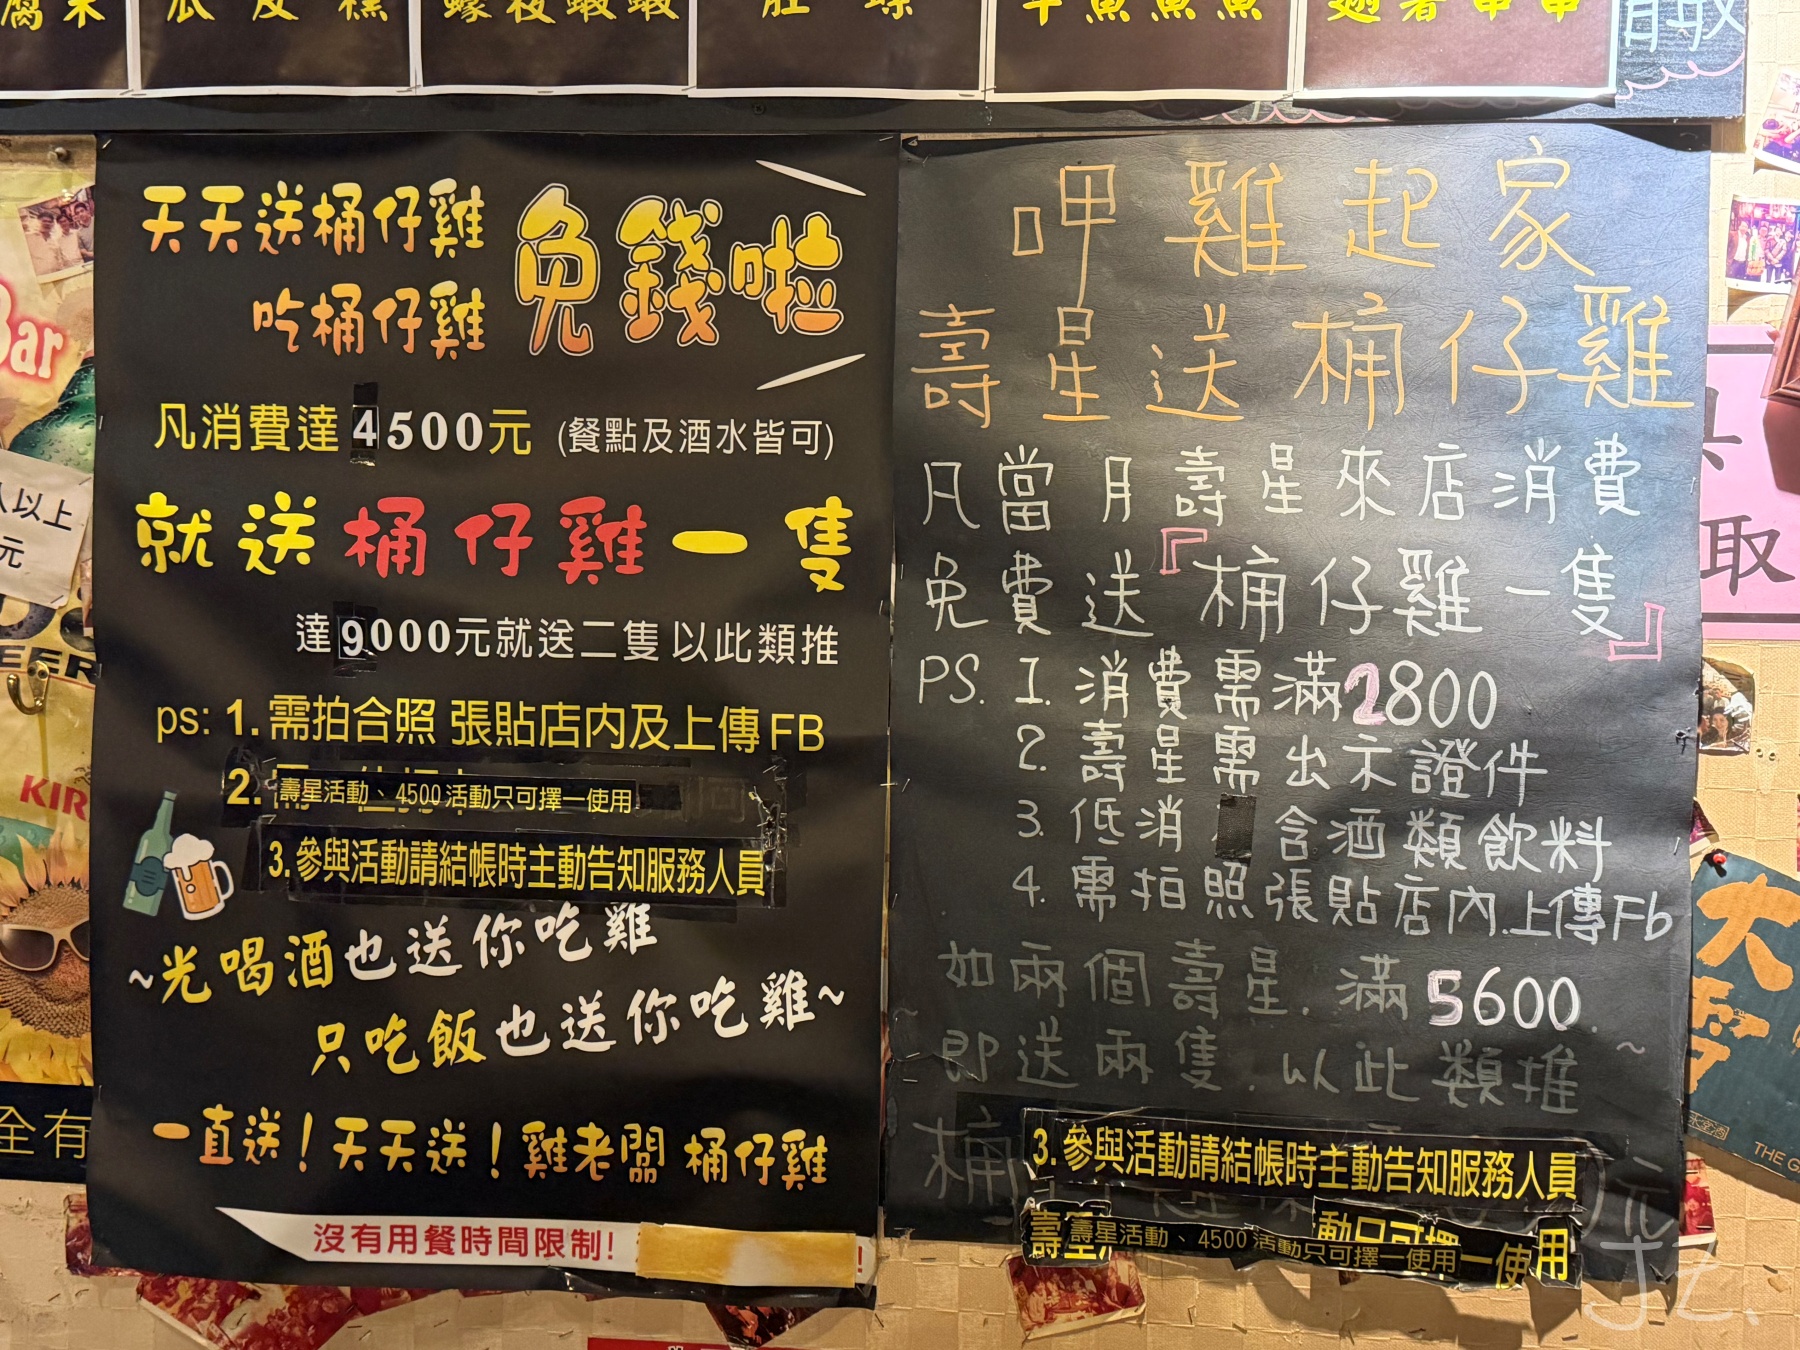 瓜皮糕
天天送桶仔雞
吃桶仔雞
免錢啦
凡消費達4500元 (餐點及酒水皆可)
就送桶仔雞一隻
達9000元就送二隻 以此類推
ps: 1. 需拍合照 張貼店內及上傳FB
2. 壽星活動、4500活動只可擇一使用
3. 參與活動請結帳時主動告知服務人員
~光喝酒也送你吃雞
只吃飯也送你吃雞~
一直送！天天送！雞老闆 桶仔雞
沒有用餐時間限制!
!
呷雞起家
壽星送桶仔雞
凡當月壽星來店消費
免費送『桶仔雞一隻』
PS. 1. 消費需滿2800
2. 壽星需出示證件
3. 低消 含酒類飲料
4. 需拍照張貼店內.上傳Fb
如兩個壽星.滿5600.
即送兩隻.以此類推~
桶
元
3. 參與活動請結帳時主動告知服務人員
壽星活動、4500活動只可擇一使用
一使用
Bar
人以上
元
EER
KIR
全有
取
大
THE G
JZ.